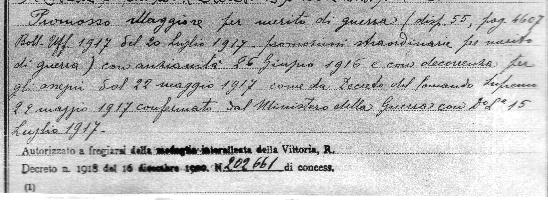 Promosso Maggiore per merito di guerra (disp. 55, pag 4607
Boll. Uff. 1917 del 20 Luglio 1917 promozioni straordinarie per merito
di guerra) con anzianità 26 Giugno 1916 e con decorrenza per
gli assegni dal 22 maggio 1917 come da Decreto del Comando Supremo
22 maggio 1917 confermato dal Ministero della Guerra con D° L° 15
Luglio 1917.-
Autorizzato a fregiarsi della medaglia interalleata della Vittoria, R.
Decreto n. 1918 del 16 dicembre 1920. N. 202661 di concess.
(1)